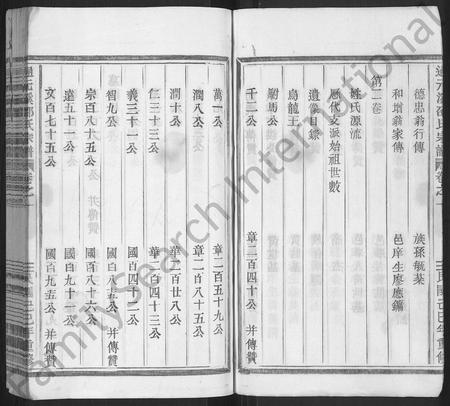 德忠翁行傳 族孫毓棻
和增翁家傳 邑庠生廖應鑣
第二卷
姓氏源流
歷代支派始祖世數
遺像目錄
烏龍王
駙馬公
千二公 章二百四十公 并傳贊
萬一公 章二百五十九公
潤八公 章二百八十五公
潤十公 華二百廿八公
仁三十三公 華二百四十三公
義三十一公 國百四十二公
智九公 國百八十五公 并傳贊
宗百八十五公 并傳贊 國百八十六公
遠五十一公 國百九十一公
文百七十五公 國百九十五公 并傳贊
民國己巳年重修
FamilySearch International